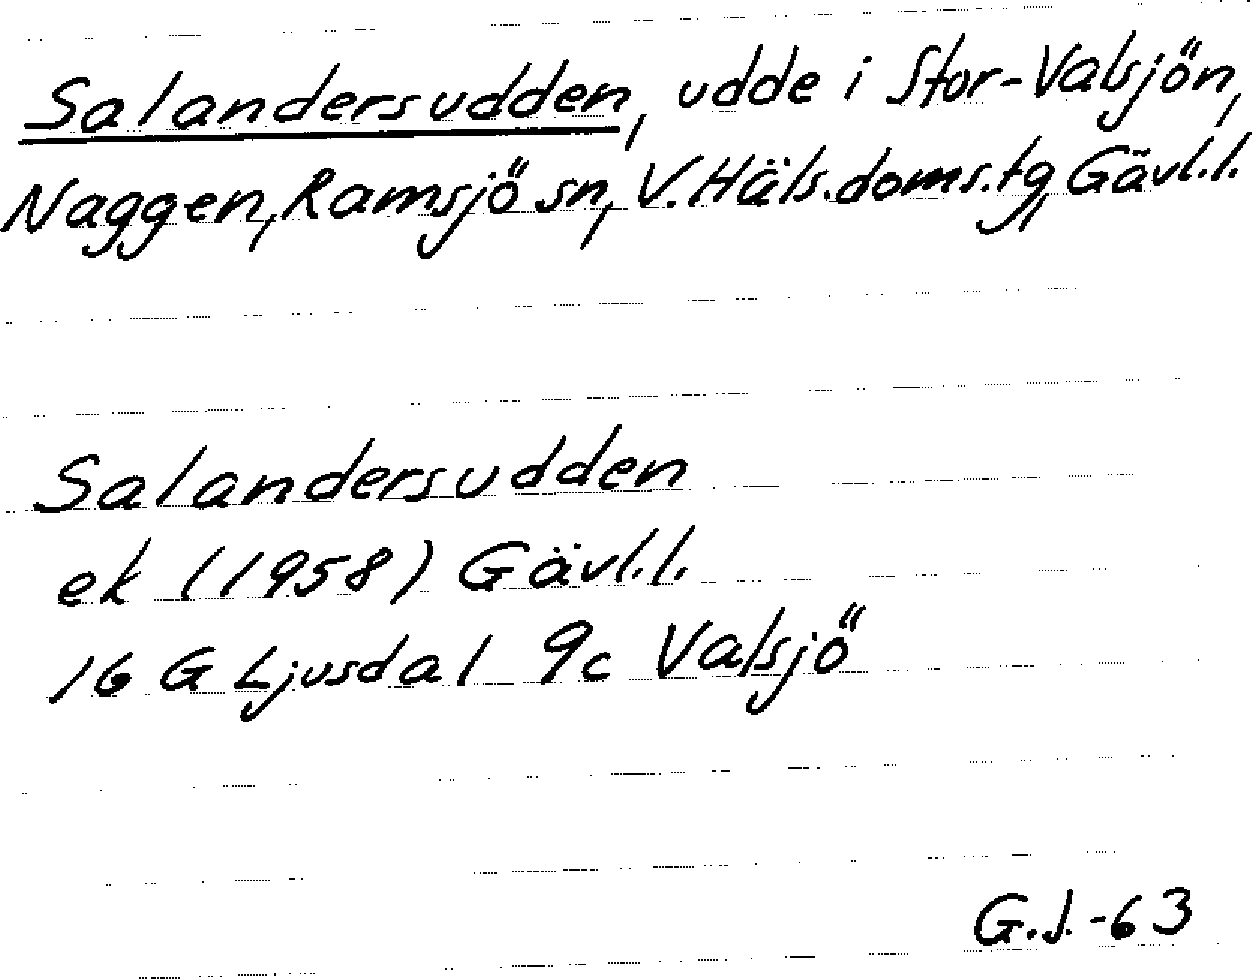 Salandersudden, udde i Stor-Valsjön,
Naggen, Ramsjö sn, V. Häls. doms. tg, Gävl.l.
Salandersudden
ek (1958) Gävl.l.
16 G Ljusdal 9c Valsjö
G.J.-63